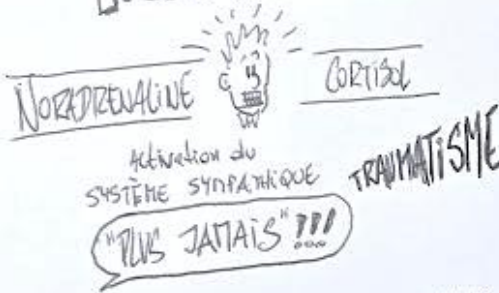 NORADRENALINE
CORTISOL
Activation du
SYSTÈME SYMPATHIQUE
TRAUMATISME
"PLUS JAMAIS" !!!